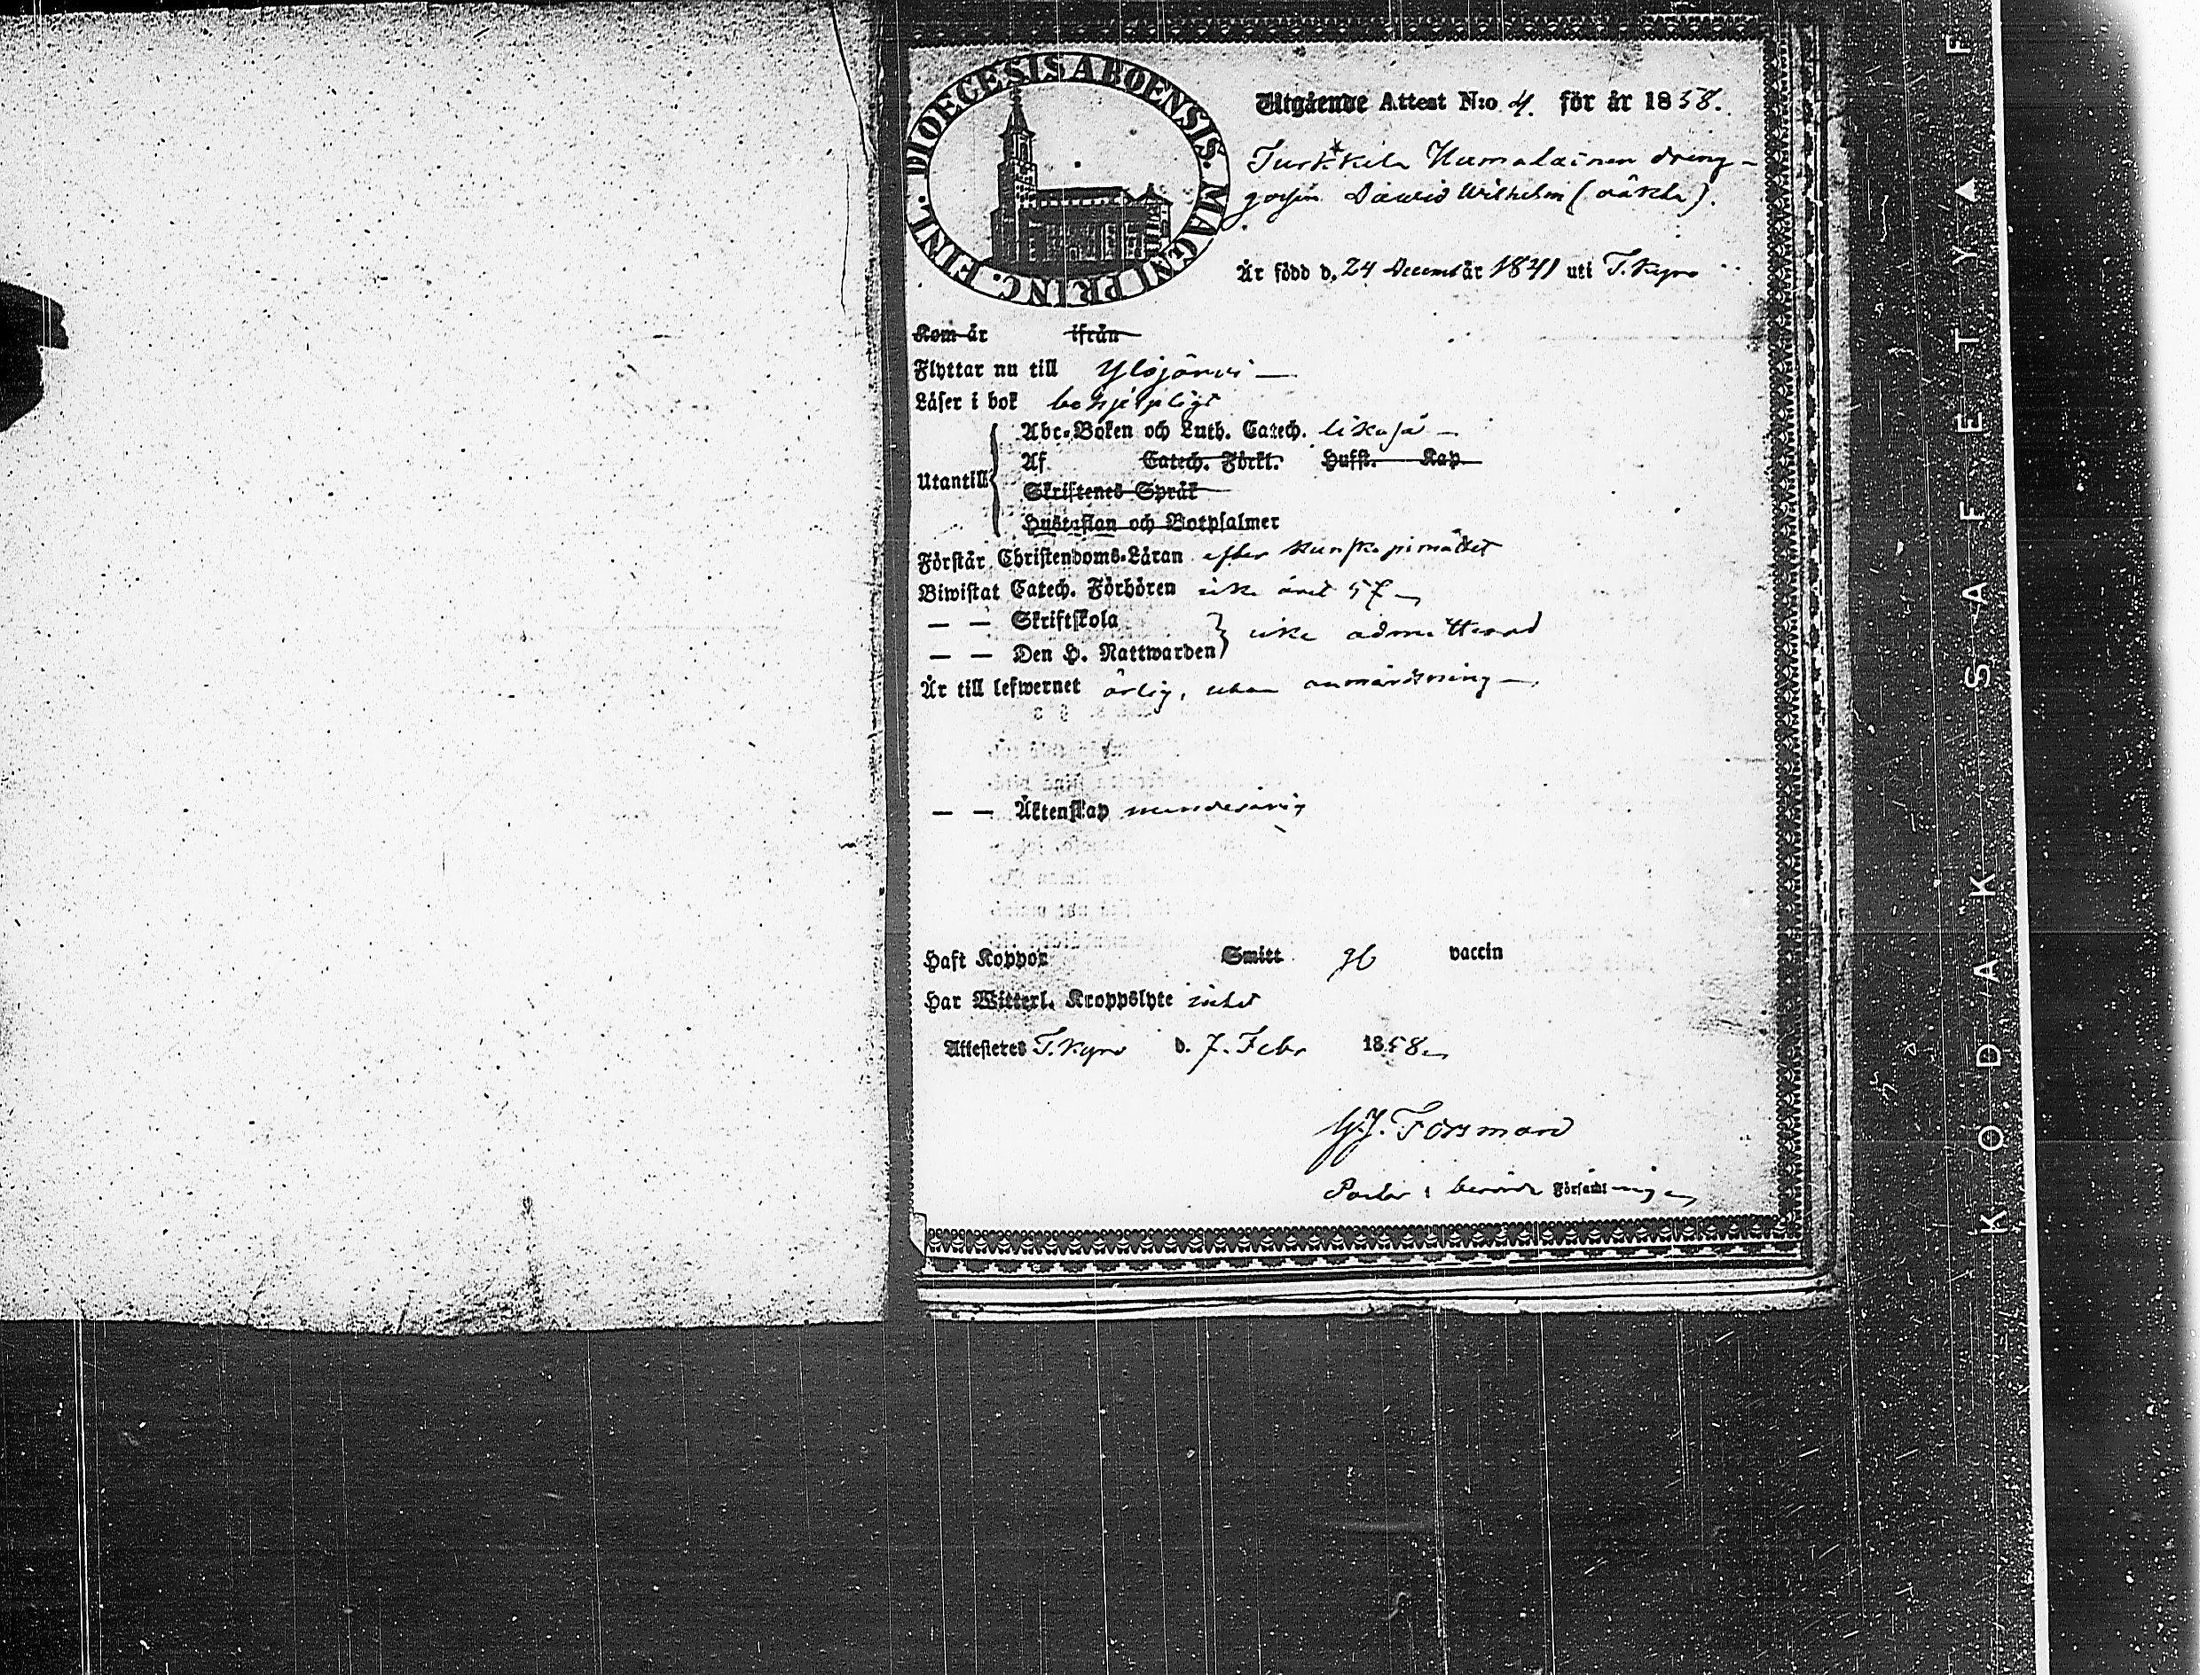 DIOECESIS ABOENSIS. MAGNI PRINC. FINL.
Utgående Attest N:o 4. för år 1858.
Humalainen dräng-
gossen Dawid Wilhelm (oäkta).
Är född d. 24 Decemb år 1841 uti T. Kyro
Kom år ifrån
Flyttar nu till Ylöjärvi —
Läser i bok behjelpligt
Abc-Boken och Luth. Catech. likaså —
Utantill
Af Catech. Förkl. Hufst. Kap.
Skriftenes Språk
Hustaflan och Botpsalmer
Förstår Christendoms-Läran efter kunskapsmåttet
Biwistat Catech. Förhören icke året 57 —
— — Skriftskola
icke admitterad
— — Den H. Nattwarden
Är till lefwernet ärlig, utan anmärkning —
— — Äktenskap minderårig
Haft Koppor Smitt vaccin
Har Witterl. Kroppslyte intet
Attesteres T. Kyro d. 7. Febr 1858
G.J. Forsman
Pastor i berörde Församling
KODAK SAFETY ▲ F